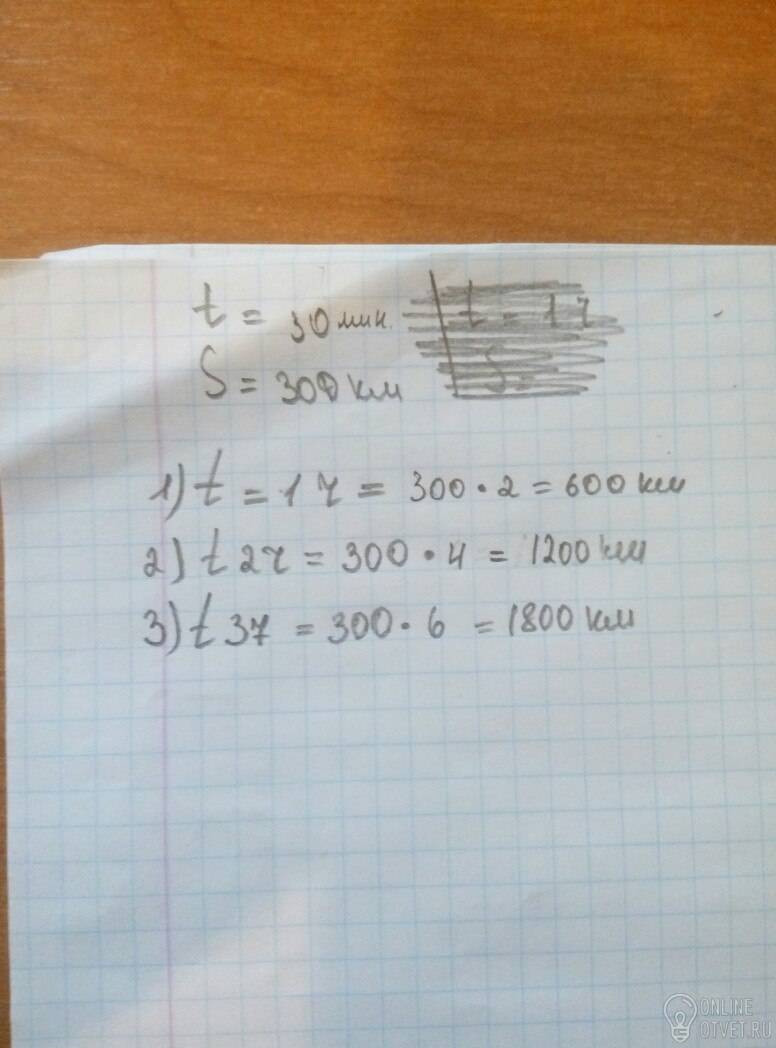 t = 30 мин.
t = 1 ч
S = 300 км
S
1) t = 1 ч = 300 · 2 = 600 км
2) t 2ч = 300 · 4 = 1200 км
3) t 3ч = 300 · 6 = 1800 км
ONLINE
OTVET.RU